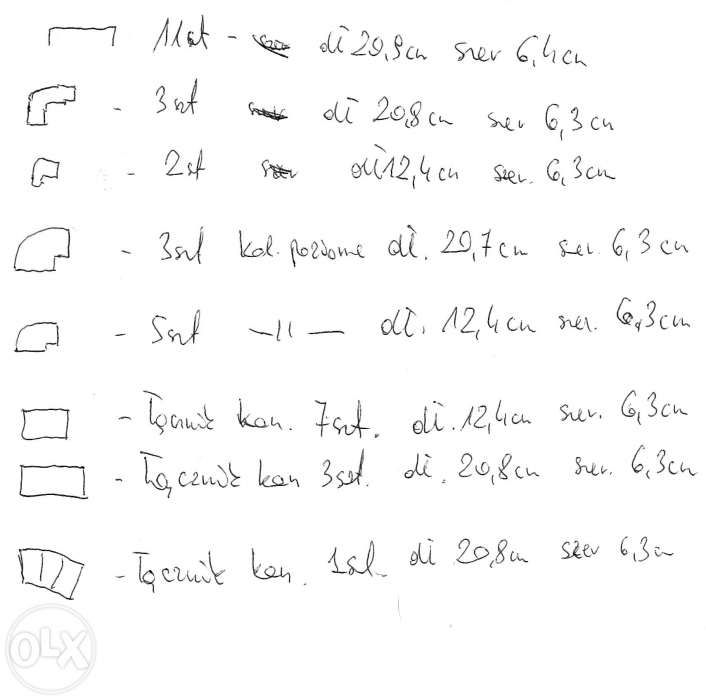 11szt - dł 20,9cm szer 6,4cm
- 3szt dł 20,8cm szer 6,3cm
- 2szt dł 12,4cm szer. 6,3cm
- 3szt kol. poziome dł. 20,7cm szer. 6,3cm
- 5szt —||— dł. 12,4cm szer. 6,3cm
- Łącznik kan. 7szt. dł. 12,4cm szer. 6,3cm
- Łącznik kan 3szt. dł. 20,8cm szer. 6,3cm
- Łącznik kan. 1szt. dł 20,8cm szer 6,3cm
OLX